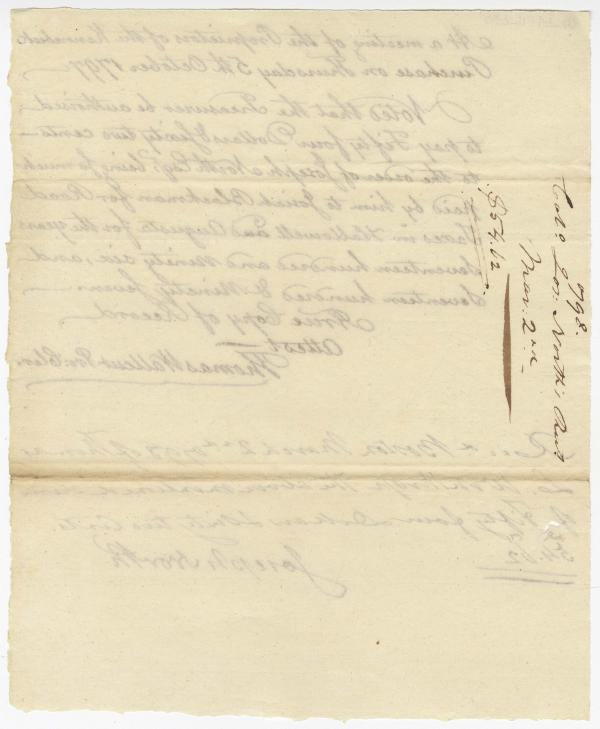 1798.
Col.o Jos. North's Rect
Mar. 2nd
$54.62
At a meeting of the Proprietors of the Kennebeck
Purchase on Thursday 5th October 1797.
Voted that the Treasurer be authorised
to pay Fifty four Dollars & sixty two cents
to the order of Joseph North Esqr. being so much
paid by him to Josiah Blackman for Road
Taxes in Hallowell and Augusta for the years
seventeen hundred and Ninety six, and
Seventeen hundred & Ninety seven.
A true Copy of Record
Attest
Thomas Wallcut Pr. Cler.
Boston March 2nd 1798 of Thomas
L. Winthrop the above mentioned sum
of Fifty four Dollars & Sixty two Cents.
$54.62
Joseph North